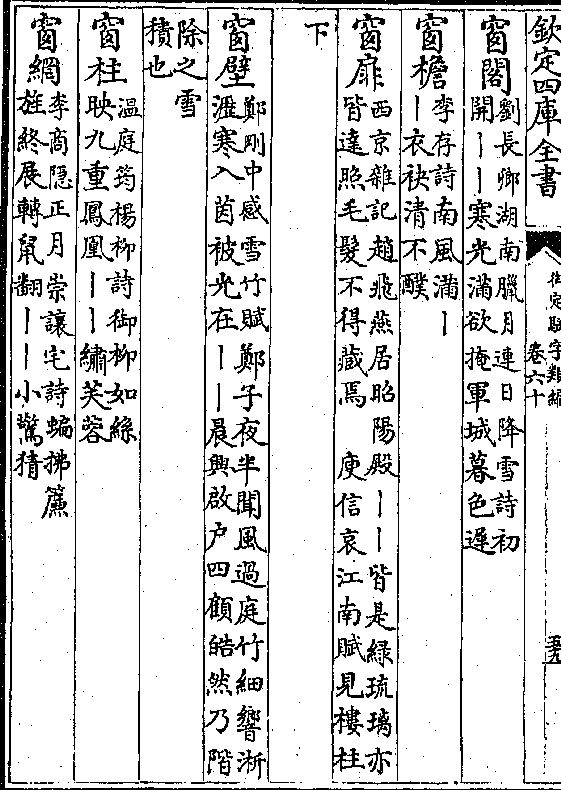 欽定四庫全書
御定駢字類編
卷六十
窗閣
劉長卿湖南臘月連日降雪詩初
開丨丨寒光滿欲掩軍城暮色遲
窗檐
李存詩南風滿丨
丨衣袂清不醭
窗扉
西京雜記趙飛燕居昭陽殿丨丨皆是綠琉璃亦
皆達照毛髮不得藏焉 庾信哀江南賦見樓柱
下
窗壁
鄭剛中感雪竹賦鄭子夜半聞風過庭竹細響淅
瀝寒入茵被光在丨丨晨興啟户四顧皓然乃階
除之雪
積也
窗桂
温庭筠楊柳詩御柳如絲
映九重鳳凰丨丨繡芙蓉
窗網
李商隱正月崇讓宅詩蝙拂簾
旌終展轉鼠翻丨丨小驚猜